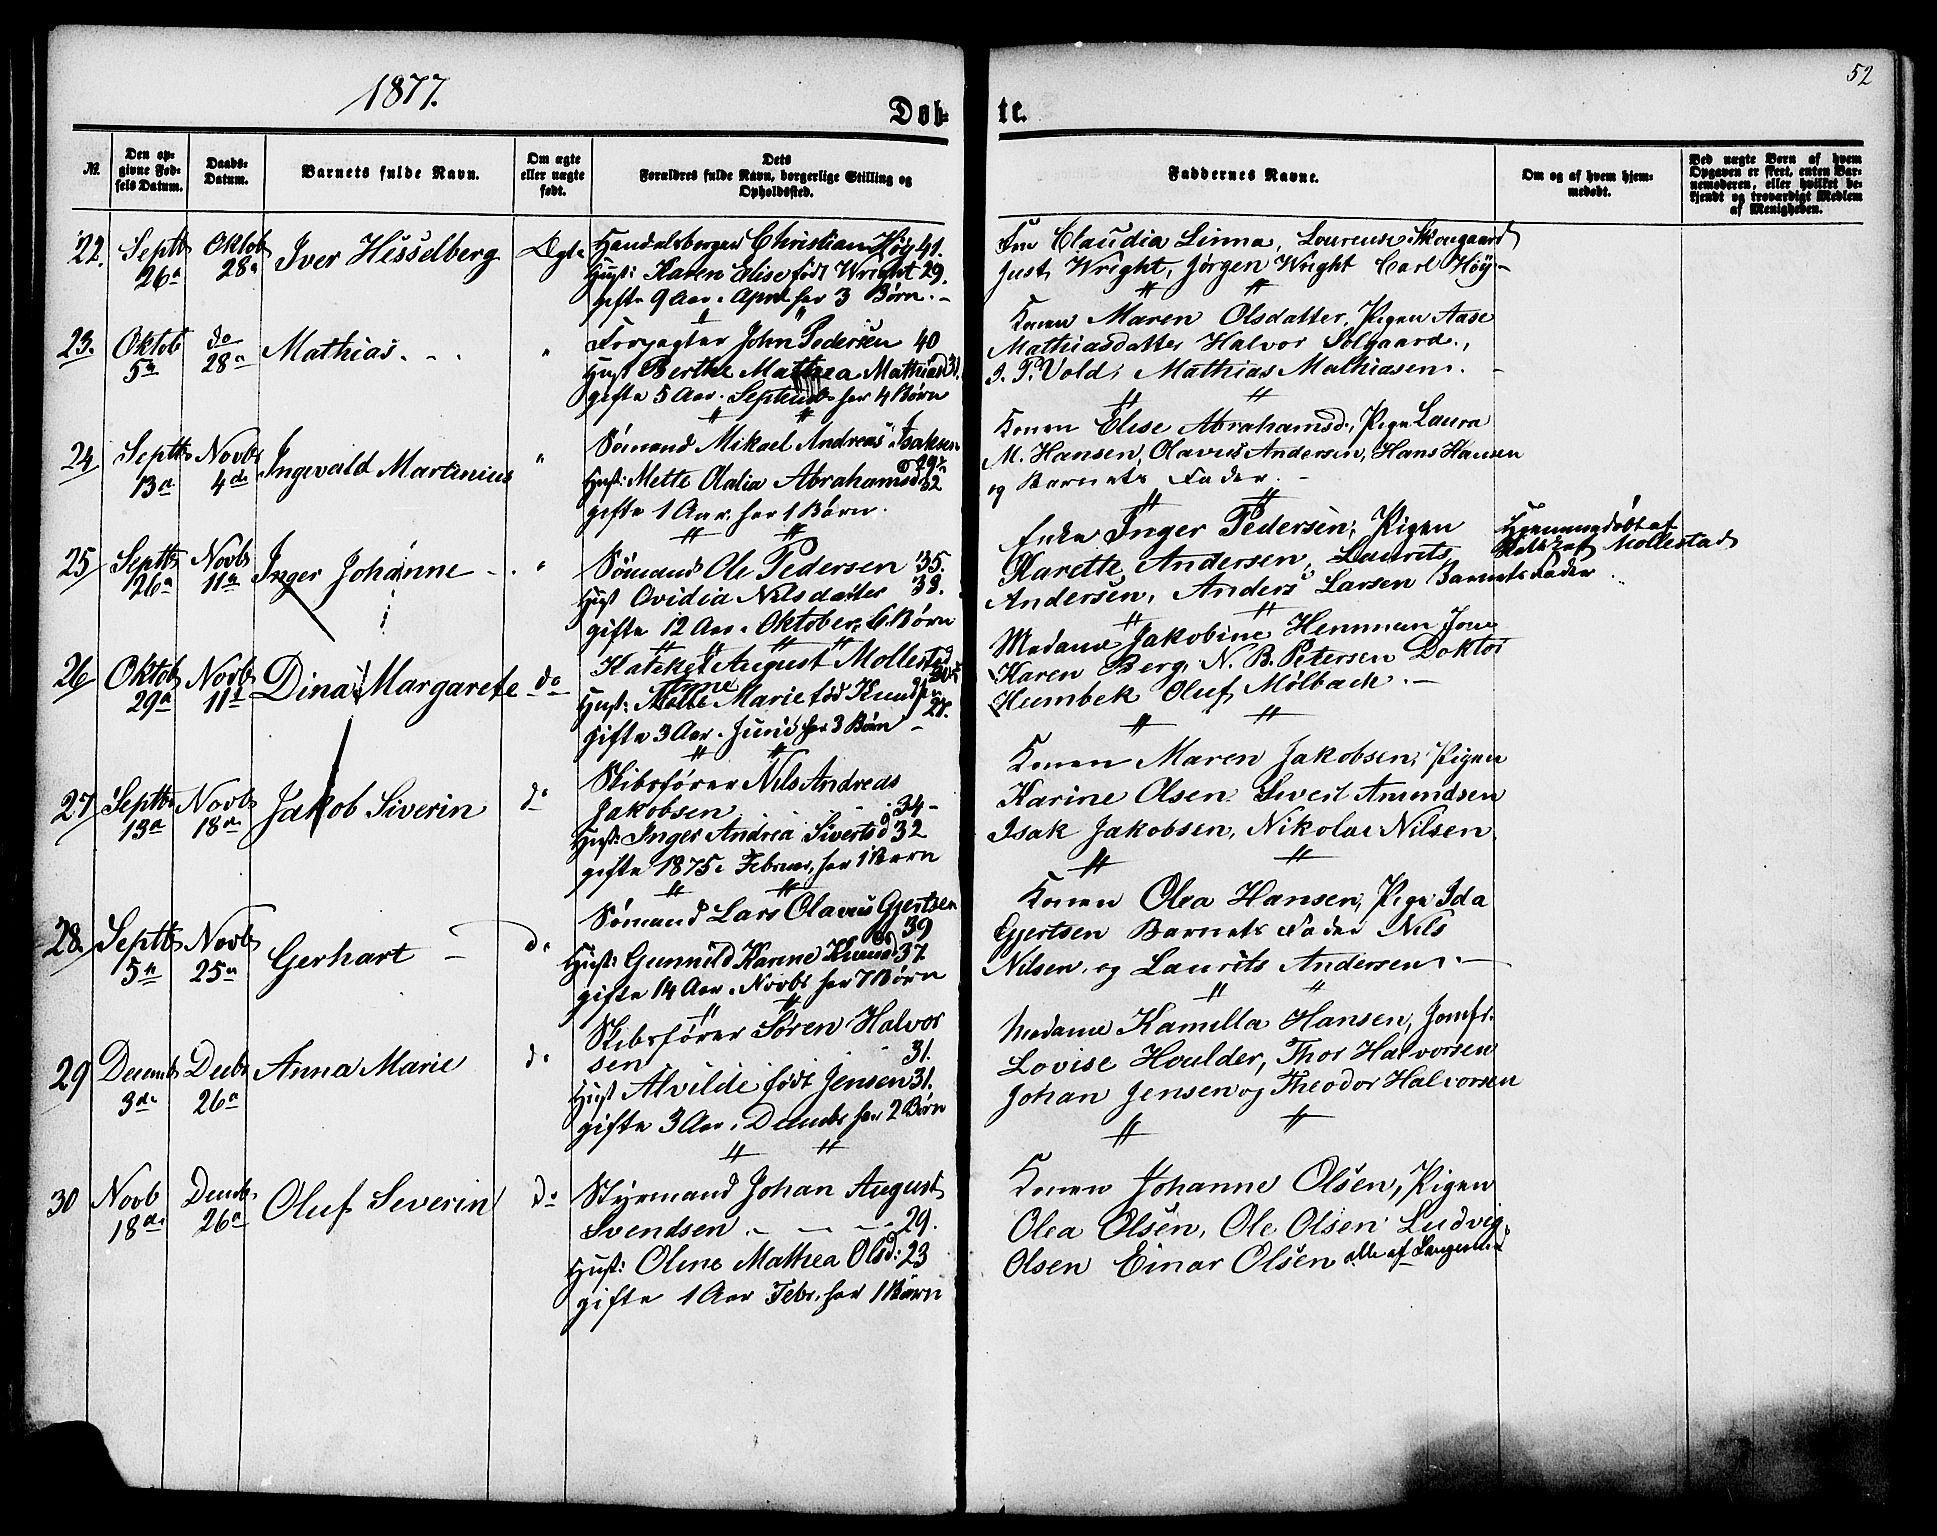 1877.
52
Døb-
te.
№
Den op-
givne Fød-
sels Datum.
Daabs-
Datum.
Barnets fulde Navn.
Om ægte
eller uægte
født.
Dets
Forældres fulde Navn, borgerlige Stilling og
Opholdssted.
Faddernes Navne.
Om og af hvem hjem-
medøbt.
Ved uægte Børn af hvem
Opgaven er skeet, enten Bar-
nemoderen, eller hvilket be-
kjendt og troværdigt Medlem
af Menigheden.
22. Septb 26a Oktob 28a Iver Hisselberg Ægte
Handelsborger Christian Höy 41.
Hust: Karen Elise født Wright 29.
gifte 9 Aar. April har 3 Børn.
Fru Claudia Linna, Lourense Skougaard
Just Wright, Jörgen Wright Carl Höy
23. Oktob 5a do 28a Mathias. "
John Pedersen 40
Hust Berthe Mathea Mathiasd 31.
gifte 5 Aar. Septemb har 4 Børn
Konen Maren Olsdatter, Pigen Aase
Mathiasdatter Halvor Solgaard,
P. Vold, Mathias Mathiasen.
24 Septb 13a Novb 4de Ingevald Martinius "
Sømand Mikael Andreas Isaksen
29
Hust: Mette Olalia Abrahamsd 32
gifte 1 Aar. har 1 Børn.
Konen Elise Abrahamsd., Pige Laura
M. Hansen, Olavus Andersen, Hans Hansen
og Barnets Fader.
25 Septb 26a Novb 11a Inger Johanne "
Sømand Ole Pedersen 35.
Hust Ovidia Nilsdatter 38.
gifte 12 Aar. Oktober, 6 Børn
Enke Inger Pedersen, Pigen
Karethe Andersen, Laurits
Andersen, Anders Larsen Barnets Fader
Hjemmedøbt af
Mollestad
26 Oktob 29a Novb 11t Dina Margarete do
August Mollestad
Anne
Hust: Marie fød Knudsen 27.
gifte 3 Aar. Juni har 3 Børn
Madame Jakobine Henman Jom
Karen Berg, N. B. Petersen Doktor
Humbek Oluf Mölback.
27 Septb 13a Novb 18de Jakob Siverin do
Skibsfører Nils Andreas
Jakobsen 34
Hust: Inger Andrea Sivertsd 32
gifte 1875. Februar, har 1 Barn
Konen Maren Jakobsen, Pigen
Karine Olsen Sivert Amundsen
Isak Jakobsen, Nikolai Nilsen.
28. Septb 5te Novb 25de Gerhart do
Sømand Lars Olavus Gjertsen
39
Hust: Gunnild Karine Knudsd 37
gifte 14 Aar. Novbr har 7 Børn
Konen Olea Hansen, Pige Ida
Gjertsen Barnets Fader Nils
Nilsen, og Laurits Andersen.
29 Decemb 3de Decbr 26a Anna Marie do
Skibsfører Søren Halvor
sen 31.
Hust Alvilde født Jensen 31.
gifte 3 Aar. Decmbr har 2 Børn
Madame Kamilla Hansen, Jomfr.
Lovise Houlder, Thor Halvorsen
Johan Jensen og Theodor Halvorsen
30 Novb 18de Decmb. 26a Oluf Severin do
Styrmand Johan August
Svendsen 29.
Hust: Oline Mathea Olsd: 23
gifte 1 Aar Febr. har 1 Børn
Konen Johanne Olsen, Pigen
Olea Olsen, Ole Olsen Ludvig
Olsen Einar Olsen alle af Langesund